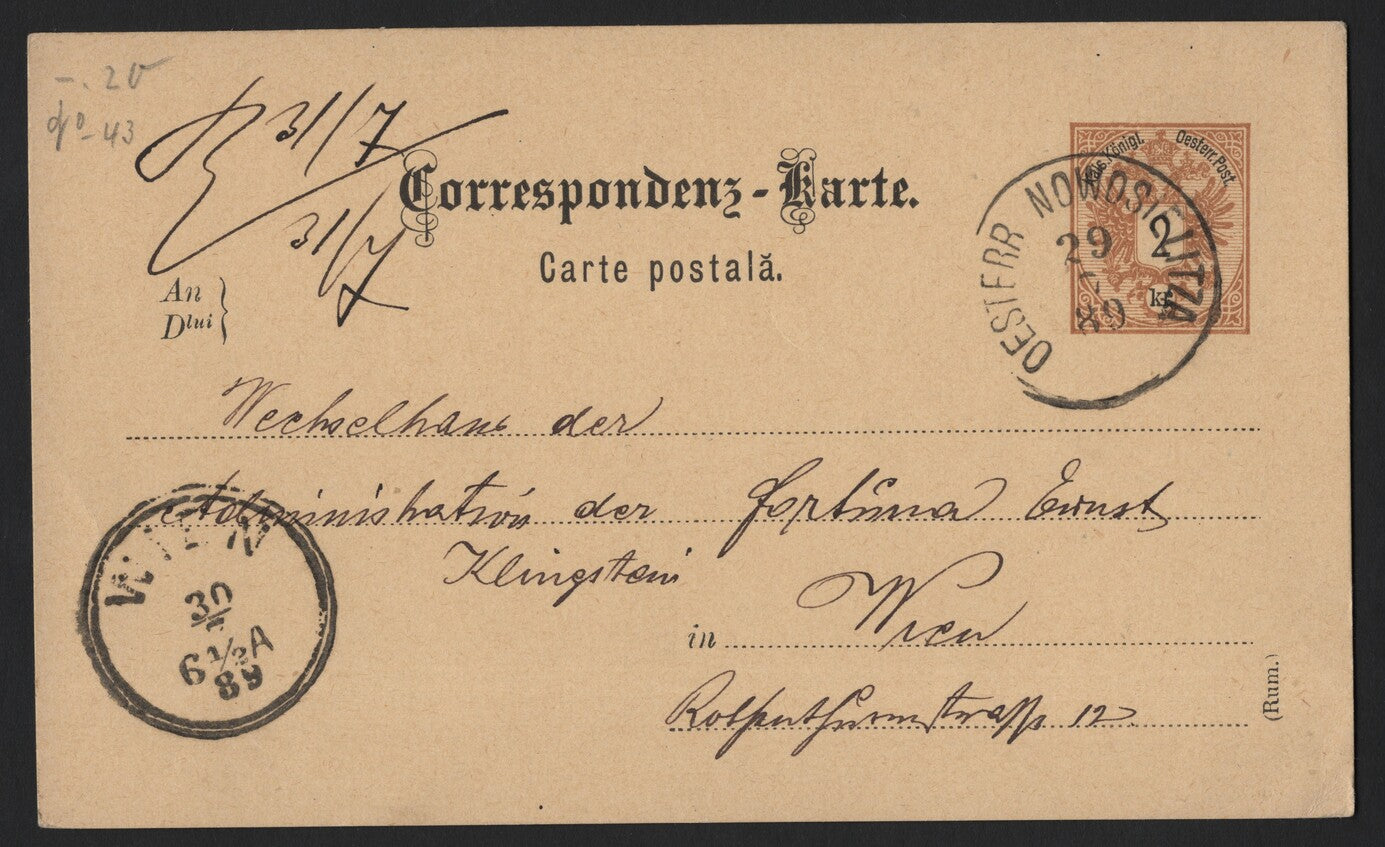 -.20
43
31/7
31/7
Correspondenz-Karte.
Carte postală.
An
Dlui
Kais. Königl. Oesterr. Post.
2
kr.
OESTERR NOWOSIELITZA
29
7
89
Wechselhaus der
Administration der Fortuna Ernst
Klingstein
in Wien
Rothenthurmstrasse 12
WIEN
30
7
6 1/2 A
89
(Rum.)